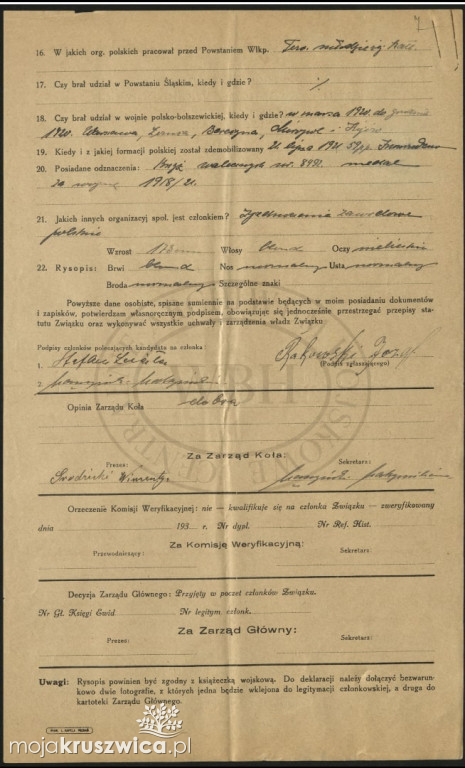 7
16. W jakich org. polskich pracował przed Powstaniem Wlkp. Tow. młodzieży Kat.
17. Czy brał udział w Powstaniu Śląskim, kiedy i gdzie? %
18. Czy brał udział w wojnie polsko-bolszewickiej, kiedy i gdzie? w marca 1920 do
1920. i Kijów
19. Kiedy i z jakiej formacji polskiej został zdemobilizowany 21 lipca 1921 59pp. Inowrocław
20. Posiadane odznaczenia: Krzyż walecznych nr. medal
za wojnę 1918/21.
21. Jakich innych organizacyj społ. jest członkiem? Zjednoczenia zawodowe
polskie
Wzrost Włosy blond Oczy niebieskie
22. Rysopis: Brwi blond Nos normalny Usta normalny
Broda normalny Szczególne znaki
Powyższe dane osobiste, spisane sumiennie na podstawie będących w moim posiadaniu dokumentów
i zapisków, potwierdzam własnoręcznym podpisem, obowiązując się jednocześnie przestrzegać przepisy sta-
tutu Związku oraz wykonywać wszystkie uchwały i zarządzenia władz Związku.
Podpisy członków polecających kandydata na członka:
1. Stefan
Rakowski Józef
(Podpis zgłaszającego)
2.
Opinia Zarządu Koła dobra
Za Zarząd Koła:
Prezes: Sekretarz:
Wincenty
Orzeczenie Komisji Weryfikacyjnej: nie — kwalifikuje się na członka Związku — zweryfikowany
dnia 193 r. Nr dypl. Nr Ref. Hist.
Za Komisję Weryfikacyjną:
Przewodniczący: Sekretarz:
Decyzja Zarządu Głównego: Przyjęty w poczet członków Związku.
Nr Gł. Księgi Ewid. Nr legitym. członk.
Za Zarząd Główny:
Prezes: Sekretarz:
Uwagi: Rysopis powinien być zgodny z książeczką wojskową. Do deklaracji należy dołączyć bezwarun-
kowo dwie fotografie, z których jedna będzie wklejona do legitymacji członkowskiej, a druga do
kartoteki Zarządu Głównego.
mojakruszwica.pl